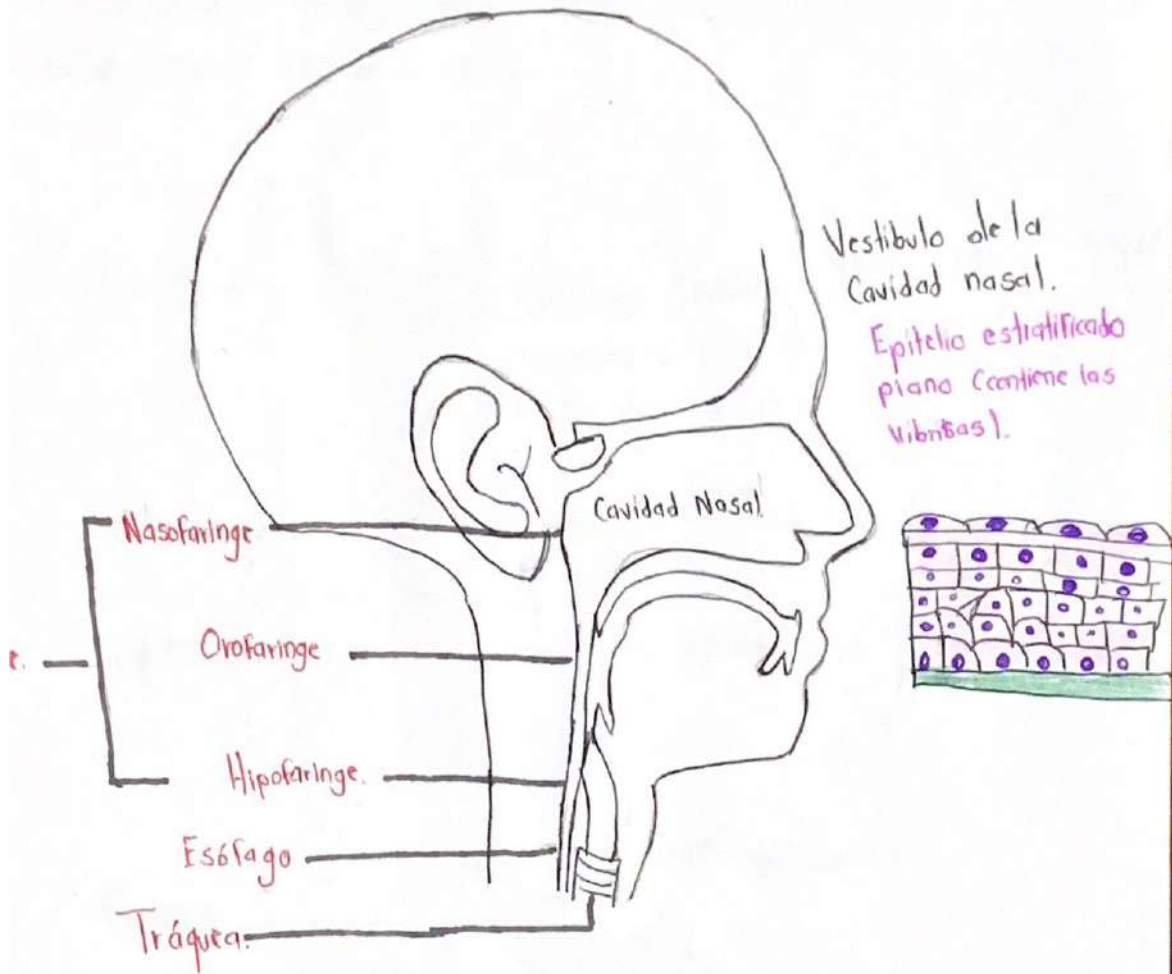 Vestibulo de la
Cavidad nasal.
Epitelio estratificado
plano (contiene las
vibrisas).
Cavidad Nasal
Nasofaringe
Orofaringe
Hipofaringe.
Esófago
Tráquea.